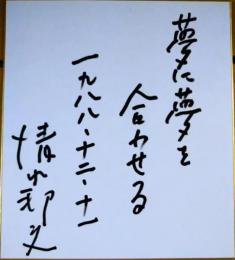 夢に夢を
合わせる
一九八八・十二・十一
情水邦文